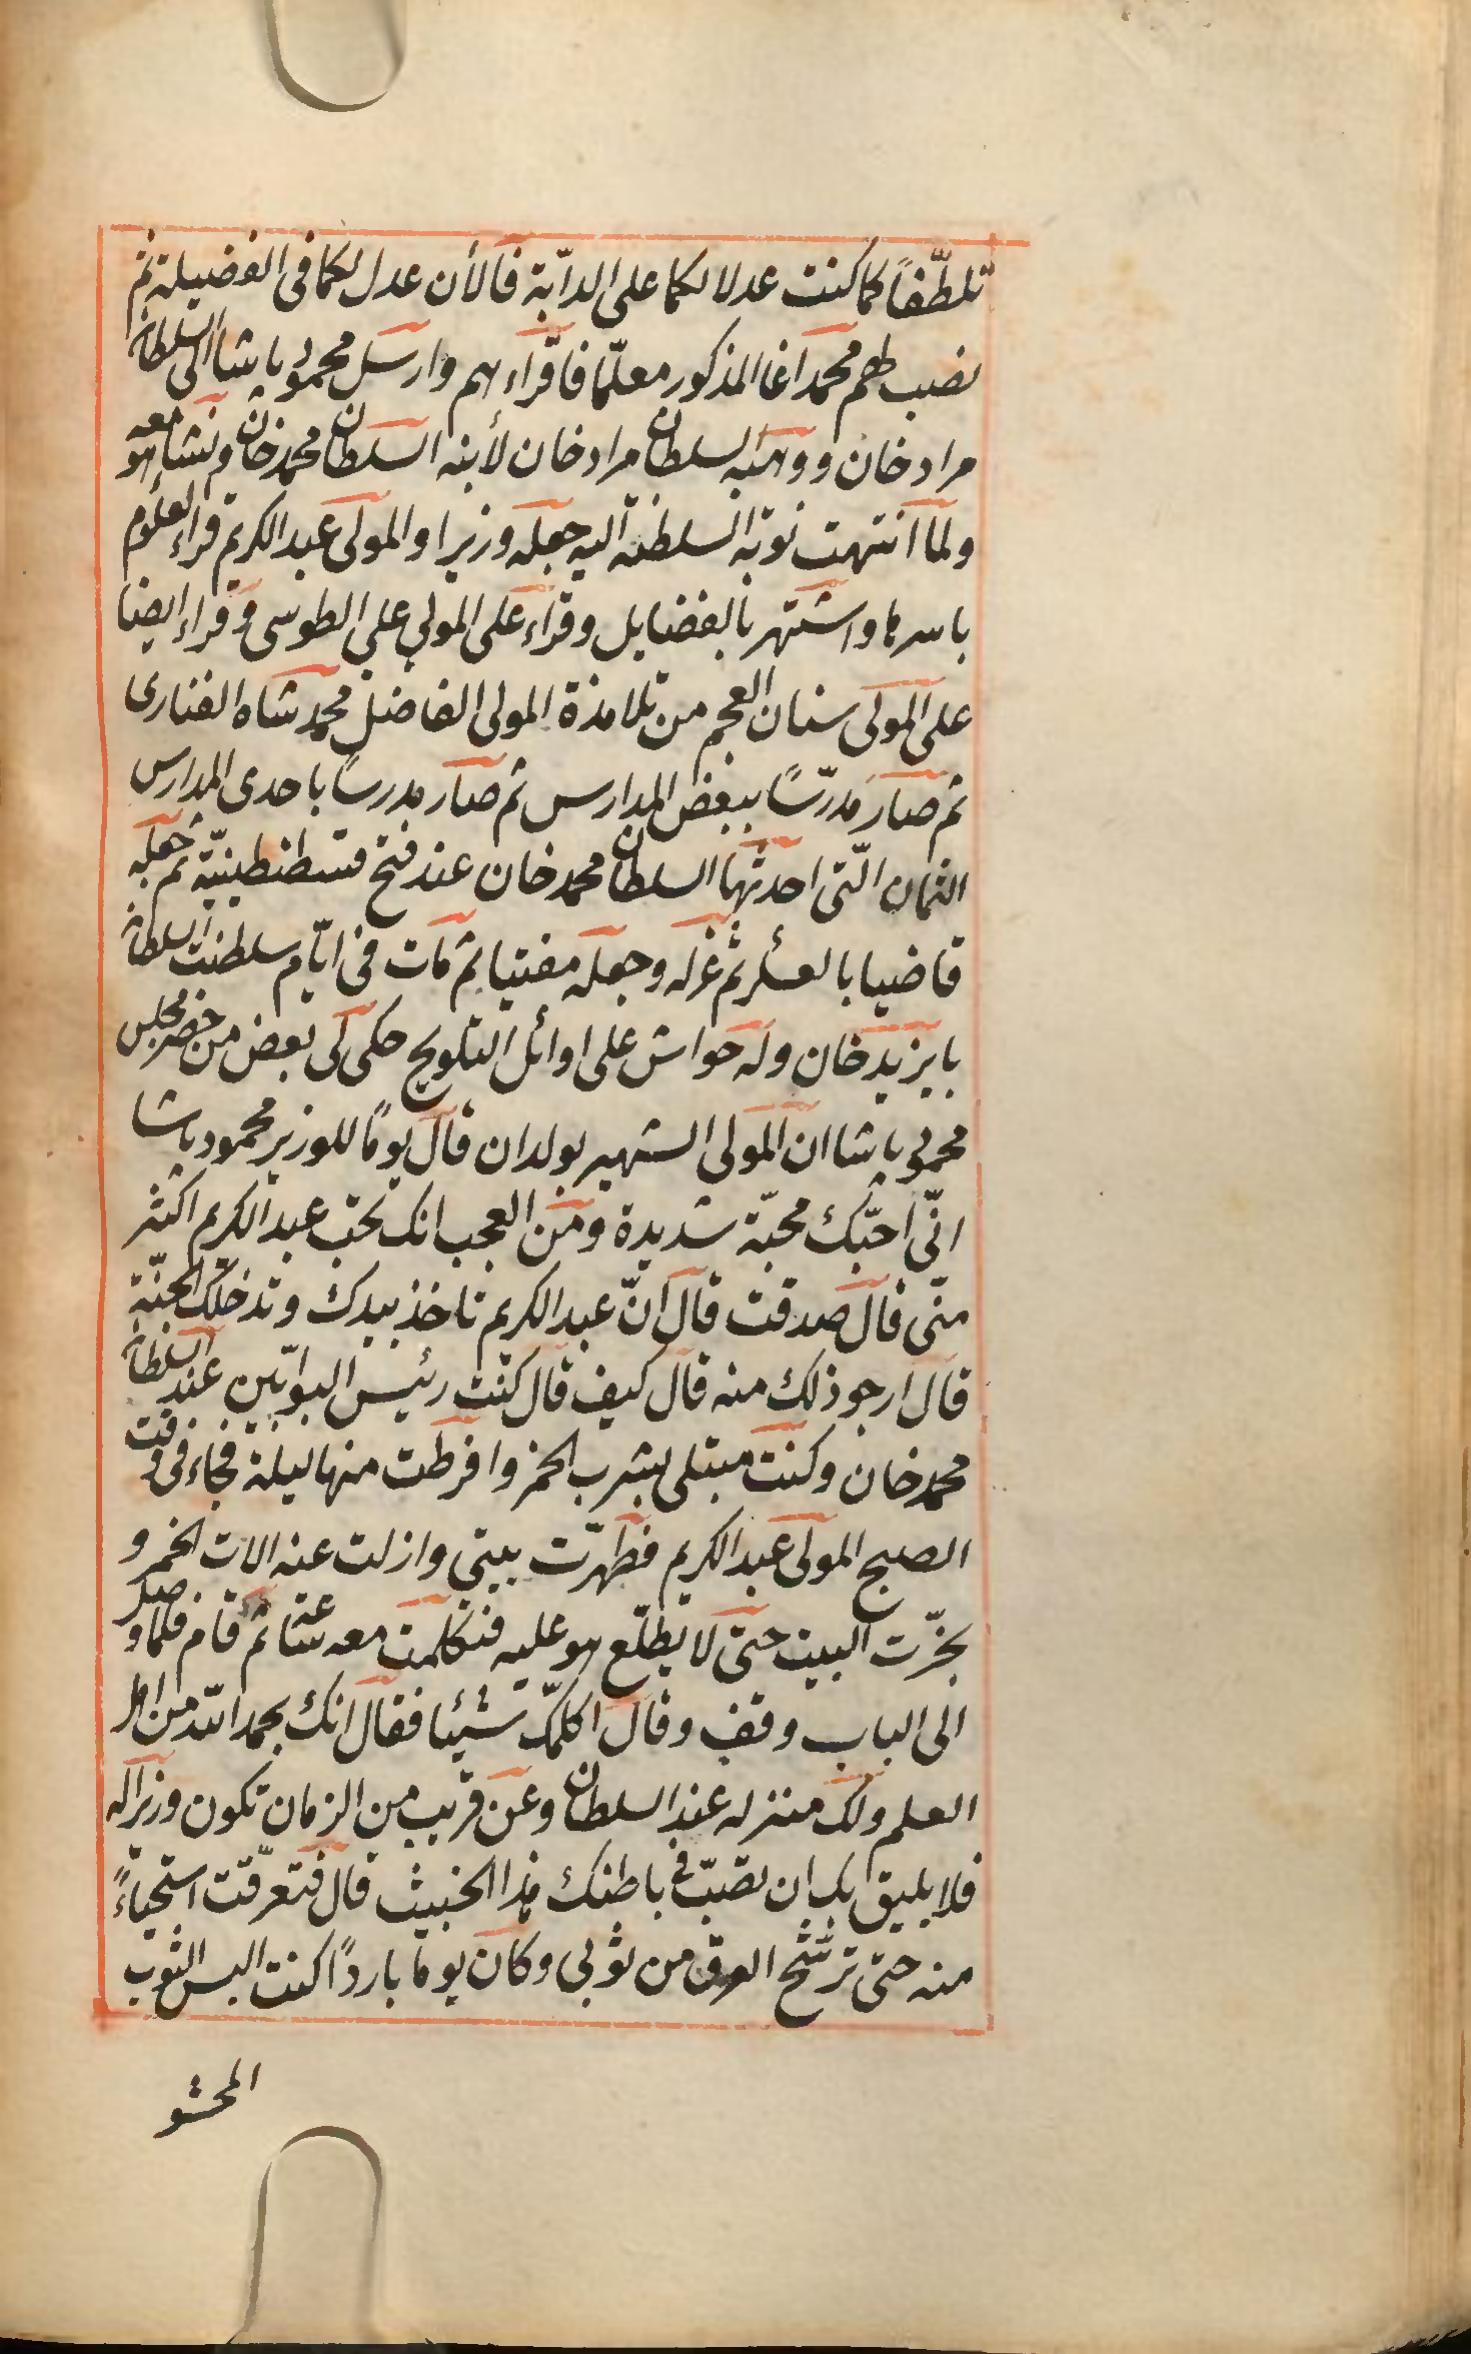 تلطّفًا كما كنت عدلا لكما على الدابّة فالأن عدل لكما فى الفضيلة ثم
نصب لهم محمد اغا المذكور معلّما فاقراءهم وارسل محمود پاشا الى السلطان
مراد خان ووهبه السلطان مراد خان لأبنه السلطان محمد خان ونشا هو معه
ولما انتهت نوبة السلطنة اليه جعله وزيرا والمولى عبد الكريم قراء العلوم
باسرها واشتهر بالفضايل وقراء على المولى على الطوسى وقراء ايضا
على المولى سنان العجم من تلامذة المولى الفاضل محمد شاه الفنارى
ثم صار مدرّسًا ببعض المدارس ثم صار مدرسًا باحدى المدارس
الثمان الّتى احدثها السلطان محمد خان عند فتح قسطنطينيّة ثم جعله
قاضيا بالعسكر ثم عزله وجعله مفتيا ثم مات فى ايّام سلطنت السلطان
بايزيد خان وله حواش على اوائل التلويح حكى لى بعض من حضر مجلس
محمود پاشا ان المولى الشهير بولدان قال يومًا للوزير محمود پاشا
انّى احبّك محبّة شديدة ومن العجب انك تحب عبد الكريم اكثر
منّى قال صدقت قال انّ عبد الكريم تاخذ بيدك وتدخلك الجنّة
قال ارجو ذلك منه قال كيف قال كنت رئيس البوابين عند السلطان
محمد خان وكنت مبتلى بشرب الخمر وافرطت منها ليلة فجاء فى وقت
الصبح المولى عبد الكريم فطهّرت بيتى وازلت عنه الات الخمر و
بخّرت البيت حتى لا يطلّع هو عليه فتكلمت معه ثم قام فلما وصل
الى الباب وقف وقال اكلمّك شيئا فقال انك بحمد الله من اهل
العلم ولك منزله عند السلطان وعن قريب من الزمان تكون وزيرا له
فلا يليق بك ان تصبّ فى باطنك هذا الخبيث قال فتعرّقت استحياءً
منه حتى ترشّح العرق من ثوبى وكان يوما باردًا كنت البس الثوب
المحشو